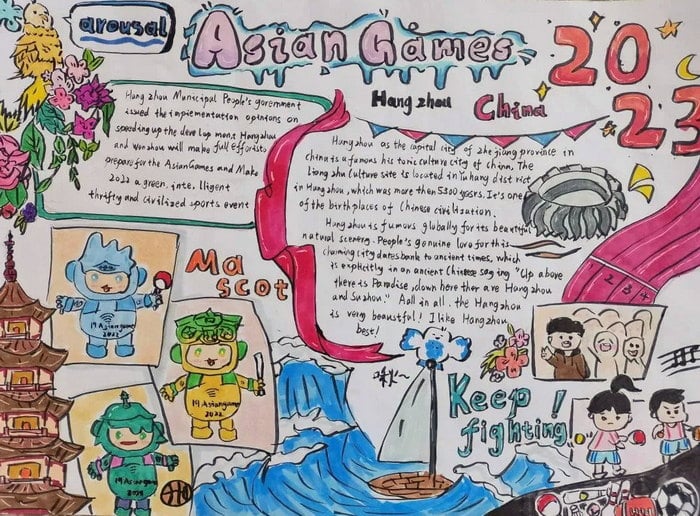 arousal
Asian Games
20
23
Hang zhou China
Hang zhou Municipal People's government
issued the implementation opinions on
speeding up the develop ment. Hangzhou
and wenzhou will make full efforts to
prepare for the Asian Games and Make
2022 a green, inte. lligent
thrifty and civilized sports event
Hangzhou as the capital city of zhe jiang province in
china is a famous his toric culture city of China, The
Liang zhu Culture site is located in Yu hang dist rict
in Hangzhou, which was more then 5300 years. It's one
of the birthplaces of Chinese civilization.
Hangzhou is famous globally for its beautiful
natural scenery. People's genuine love for this
charming city dates bank to ancient times, which
is explicitly in an ancient Chinese say ing "Up above
there is Paradise, down here there are Hangzhou
and Su zhou." Aall in all. the Hangzhou
is very beautiful! I like Hangzhou
best!
Ma
scot
19 Asiangame
2022
19 Asiangame
2022
19 Asiangame
1 2 3 4
Keep
fighting!